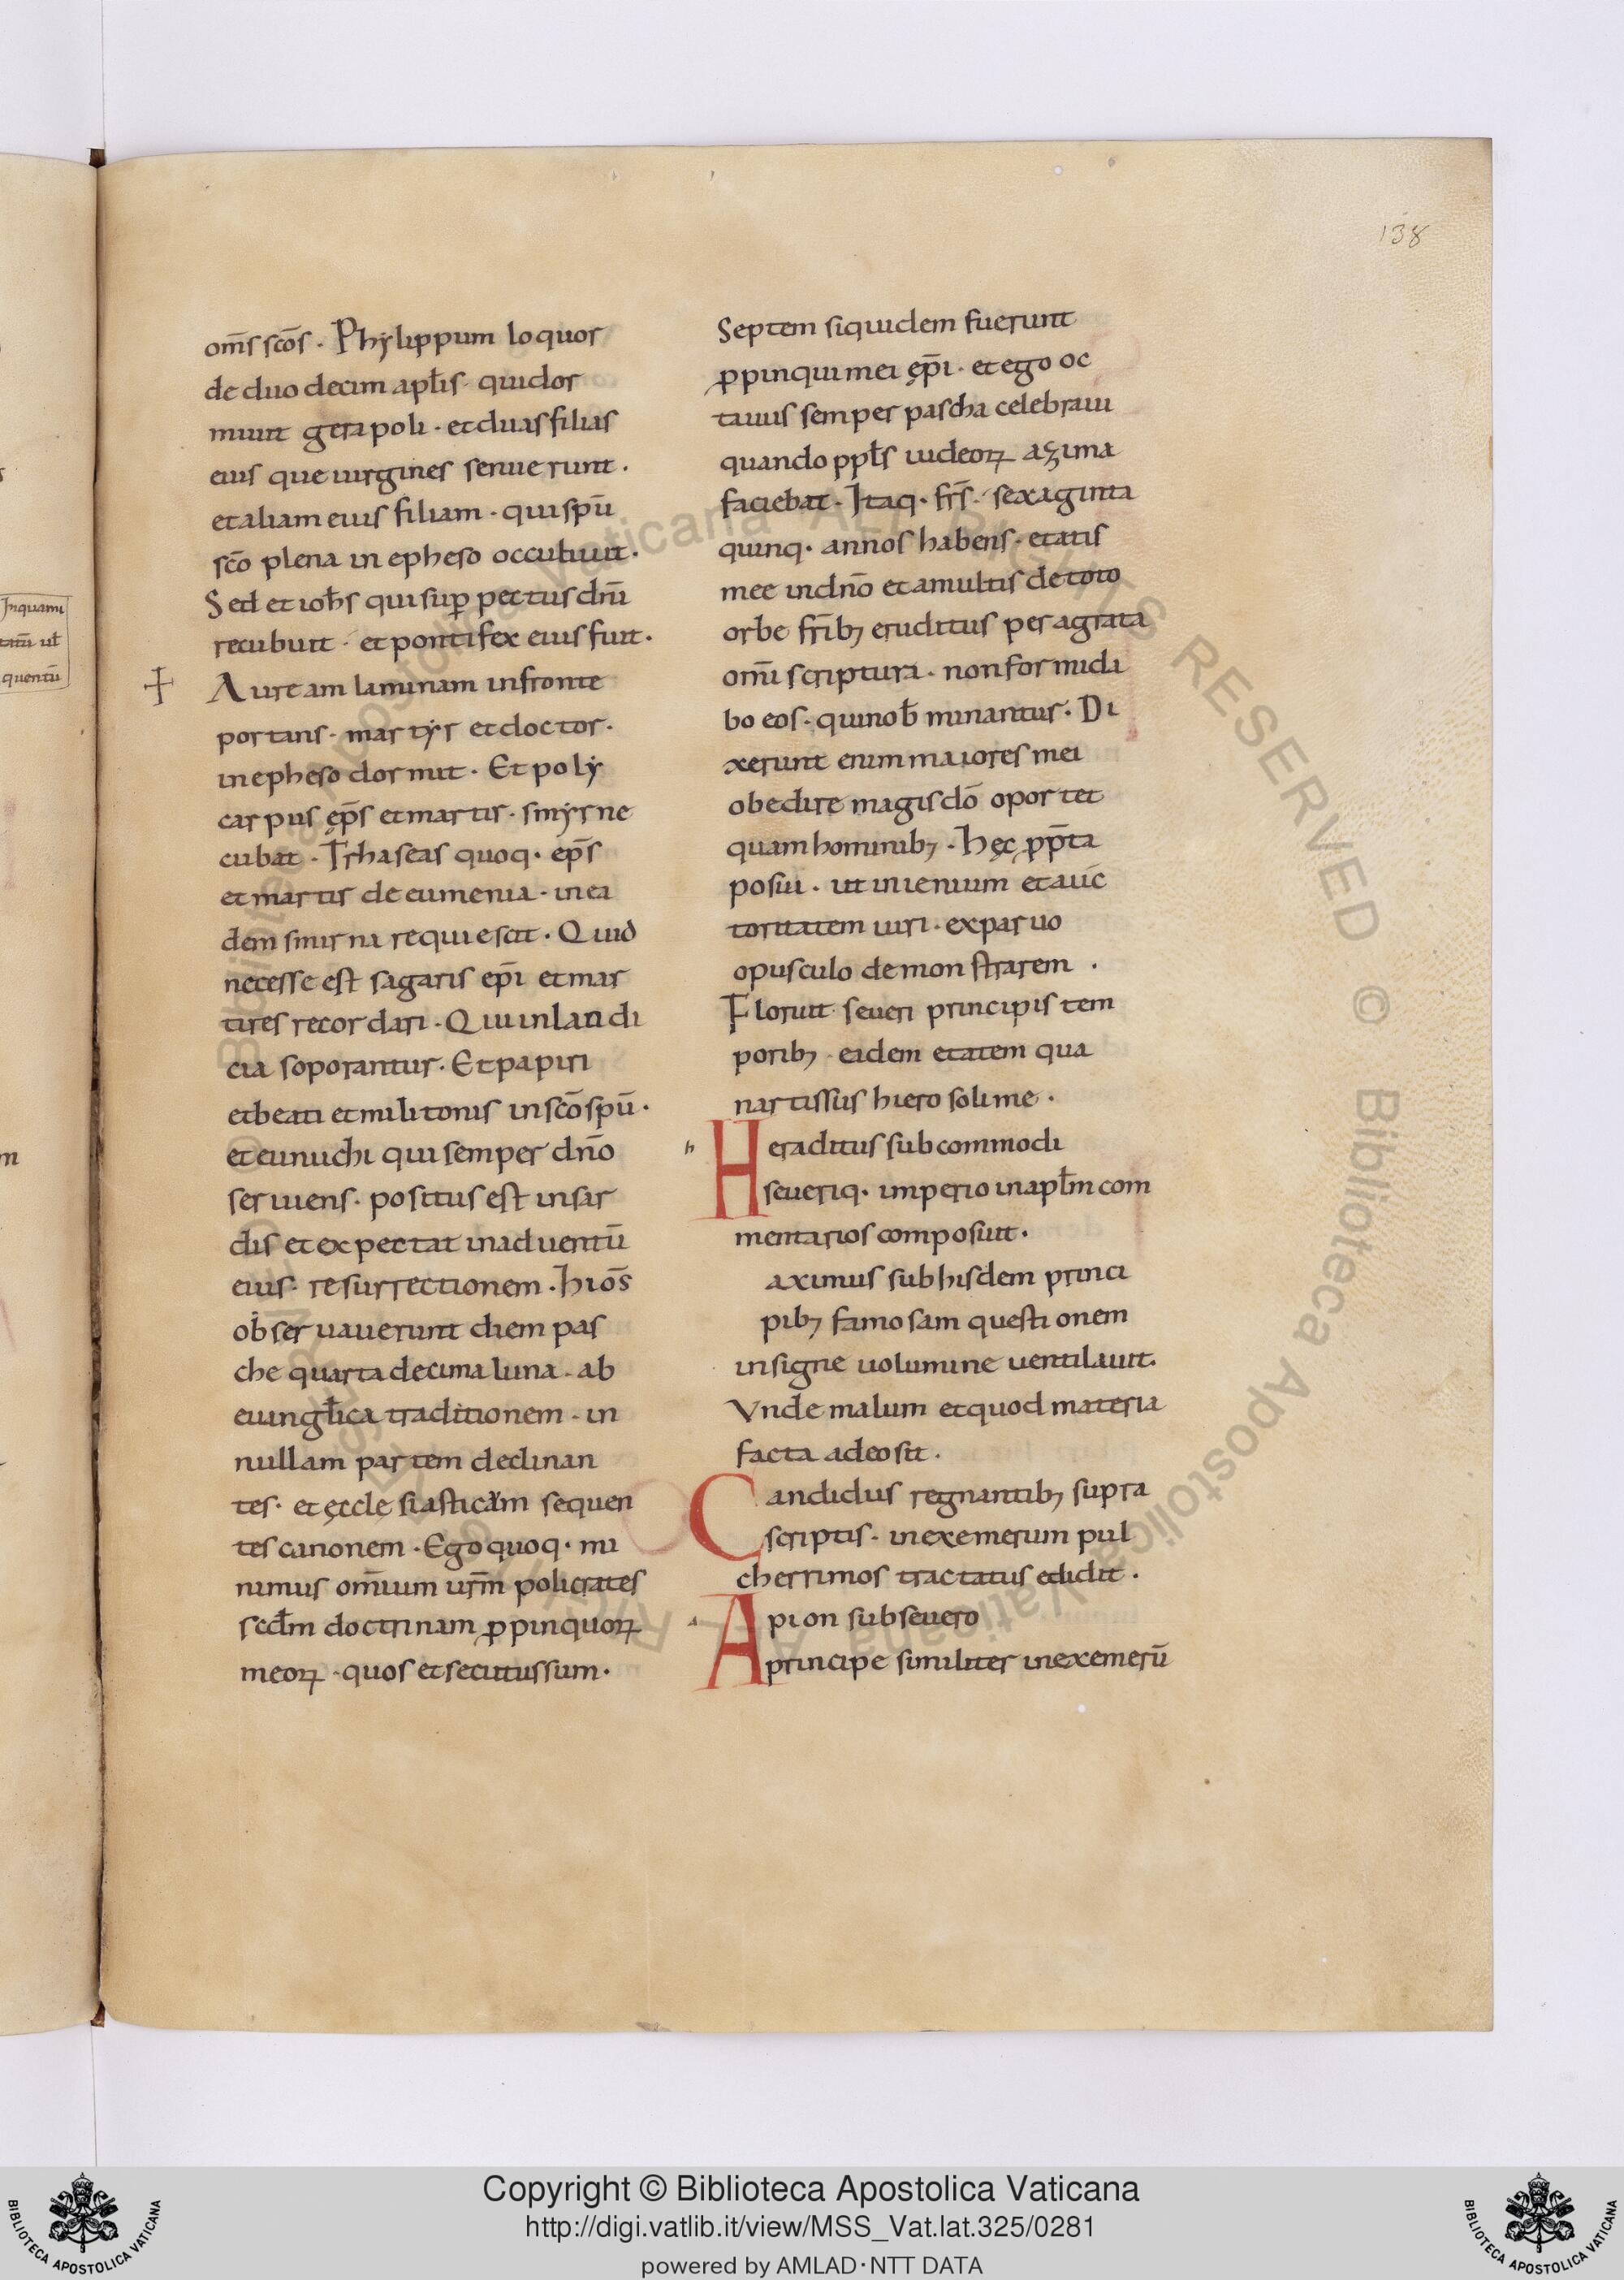 138
Inquami
tatū. ul̄
quentū
om̄s sc̄os. Phylippum loquor
de duodecim apl̄is. qui dor
miuit gerapoli. et duas filias
eius que uirgines senuerunt.
et aliam eius filiam. qui spū
sc̄o plena in epheso occubuit.
Sed et ioh̄s qui sup̲ pectus dn̄i
recubuit. et pontifex eius fuit.
Auream laminam in fronte
portans. martyr et doctor.
in epheso dormit. Et poly
carpus ep̄s et martis. smyrne
cubat. Trhaseas quoq. ep̄s
et martir de eumenia. in ea
dem smirna requiescit. Quid
necesse est sagaris ep̄i et mar
tires recordari. Qui in laudi
cia soporantur. Et papiri
et beati et militonis in sc̄o spū.
et eunuchi qui semper dn̄o
seruiens. positus est in sar
dis et expectat in aduentū
eius. resurrectionem. hi om̄s
obseruauerunt diem pas
che quarta decima luna. ab
euungl̄ica traditionem. in
nullam partem declinan
tes. et ęcclesiasticam sequen
tes canonem. Ego quoq. mi
nimus om̄ium urm̄ policrates
scd̄m doctrinam ꝓpinquoꝝ
meoꝝ. quos et secutus sum.
Septem siquidem fuerunt
ꝓpinqui mei ep̄i. et ego oc
tauus semper pascha celebraui
quando ppl̄s iudeoꝝ azima
faciebat. Itaq. fr̄s. sexaginta
quinq. annos habens. etatis
mee in dn̄o et a multis de toto
orbe fr̄ib; eruditus peragrata
om̄i scriptura. non formida
bo eos. qui nob̄ minantur. Di
xerunt enim maiores mei
obedire magis dō oportet
quam hominib;. Hęc ꝓpt̄a
posui. ut inienium et auc
toritatem uiri. ex paruo
opusculo demonstrarem.
Floruit seueri principis tem
porib;. eadem etatem qua
nartissus hierosolime.
h
Heraclitus sub commodi
seueriq. imperio in apl̄m com
mentarios composuit.
aximus sub hisdem princi
pib; famosam questionem
insigne uolumine uentilauit.
Vnde malum et quod materia
facta a deo sit.
Candidus regnantib; supra
scriptis. in exemerum pul
cherrimos tractatus edidit.
a
Apion sub seuero
principe similiter in exemerū
Copyright © Biblioteca Apostolica Vaticana
http://digi.vatlib.it/view/MSS_Vat.lat.325/0281
powered by AMLAD·NTT DATA
BIBLIOTECA APOSTOLICA VATICANA
BIBLIOTECA APOSTOLICA VATICANA